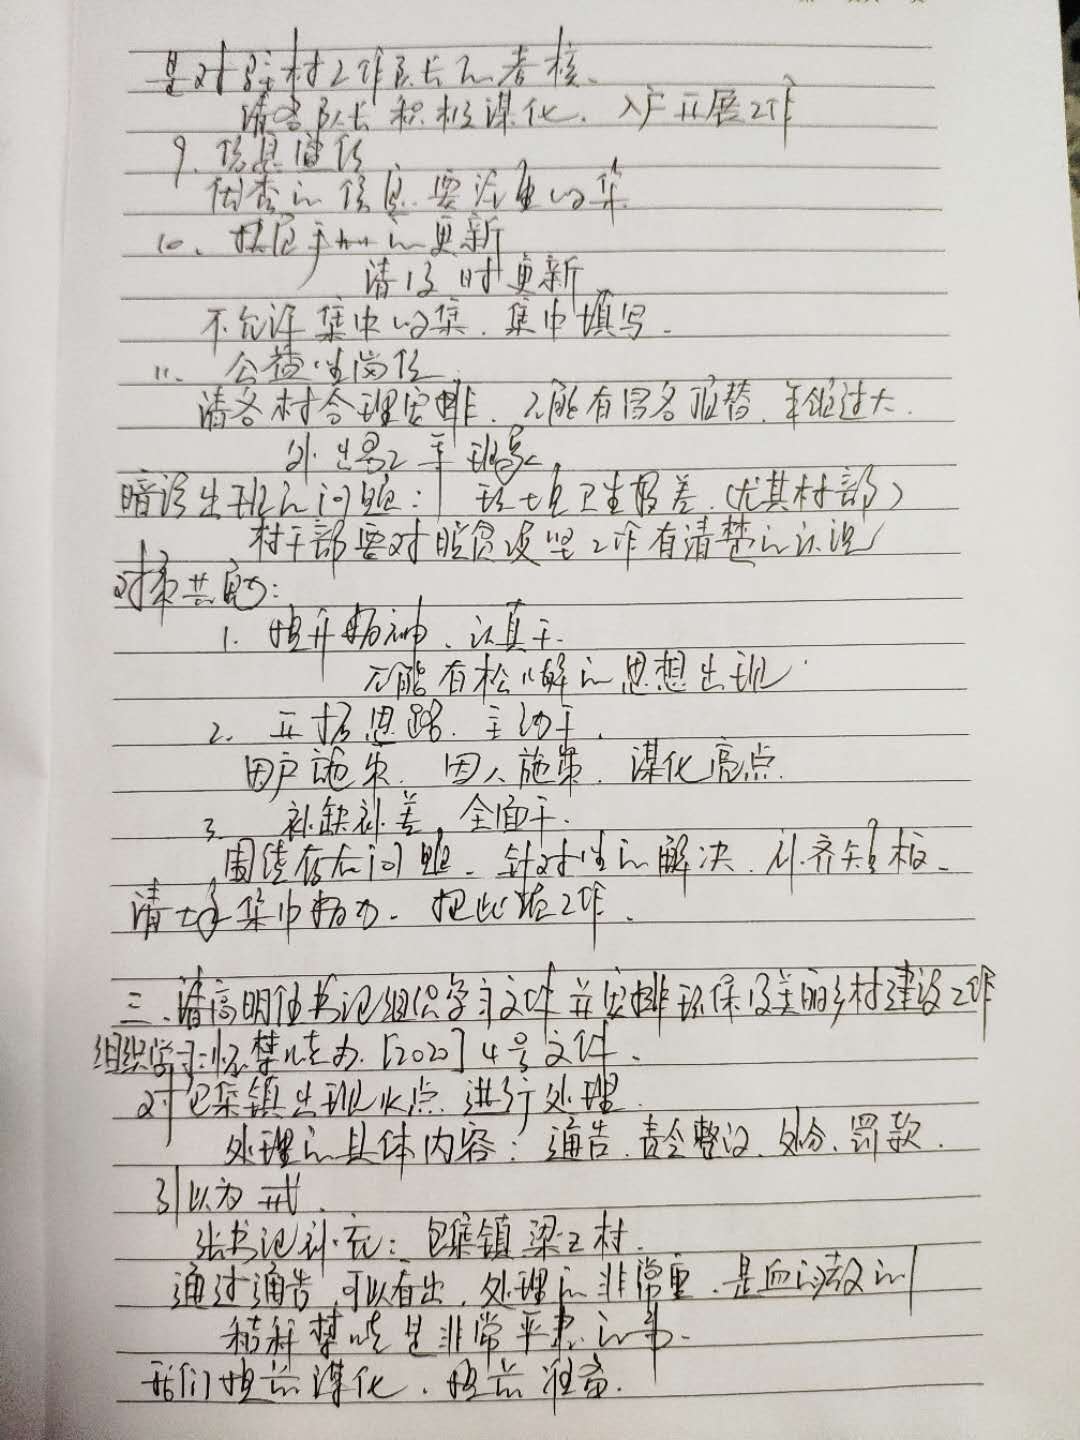 是对驻村工作队长的考核、
请各队长积极谋化、入户开展工作
9、信息宣传
信息要注重收集
10、扶贫手册的更新
请及时更新
不允许集中收集、集中填写.
11、公益性岗位
请各村合理安排、不能有冒名顶替、年龄过大、
外出务工等现象
暗访出现的问题: 环境卫生较差、(尤其村部)
村干部要对脱贫攻坚工作有清楚的认识
对
1. 提升精神、认真干.
不能有松懈的思想出现
2. 开拓思路、主动干.
因户施策、因人施策、谋化亮点.
3. 补缺补差,全面干.
围绕存在问题、针对性的解决、补齐短板、
请大家集中精力、把此项工作、
三、请高明伍书记组织学习文件并安排环保及美丽乡村建设工作
组织学习:怀禁烧办[2020]4号文件、
对包集镇出现火点、进行处理
处理的具体内容: 通告、责令整改、处分、罚款、
引以为戒、
张书记补充: 包集镇梁王村.
通过通告,可以看出,处理的非常重、是血的教训
秸秆禁烧是非常严肃的事、
我们提前谋化、提前准备.